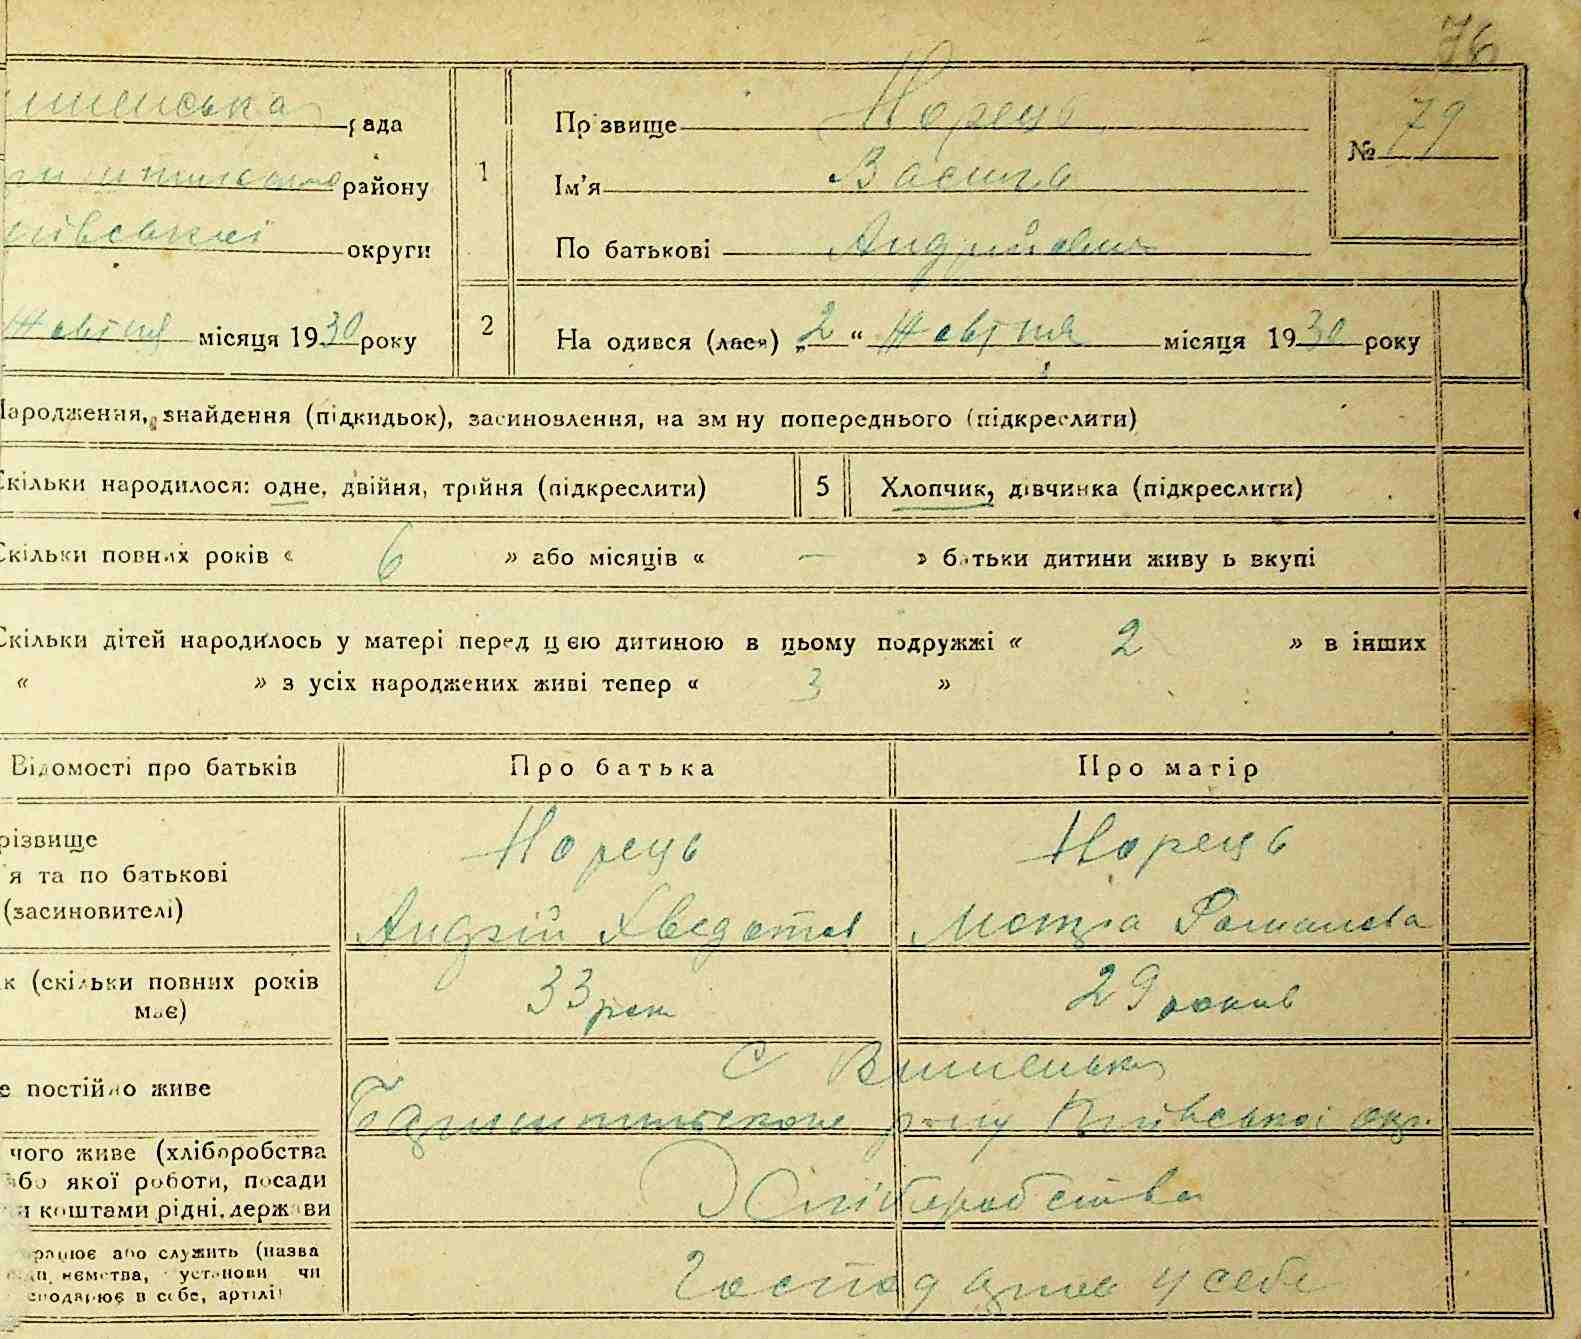 76
ишенська рада
району
ївської округи
Жовтня місяця 1930 року
1
Пр звище Норець
Ім'я Василь
По батькові Андрійович
№ 79
2
На одився (лася) „2“ Жовтня місяця 1930 року
Народження, знайдення (підкидьок), засиновлення, на зм ну попереднього (підкреслити)
Скільки народилося: одне, двійня, трійня (підкреслити)
5
Хлопчик, дівчинка (підкреслити)
Скільки повних років « 6 » або місяців « — » батьки дитини живу ь вкупі
Скільки дітей народилось у матері перед цією дитиною в цьому подружжі « 2 » в інших
« » з усіх народжених живі тепер « 3 »
Відомості про батьків
Про батька
Про матір
різвище
'я та по батькові
(засиновителі)
Норець
Андрій Хведотов
Норець
Мотря Романова
к (скільки повних років
має)
33 рок
29 років
е постійно живе
С Вишеньки
Бориспільського р-ну Київської окр.
чого живе (хліборобства
або якої роботи, посади
и коштами рідні, держави
Хліборобства
рацює або служить (назва
нємства, установи чи
сподарює в себе, артілі
Господарює у себе